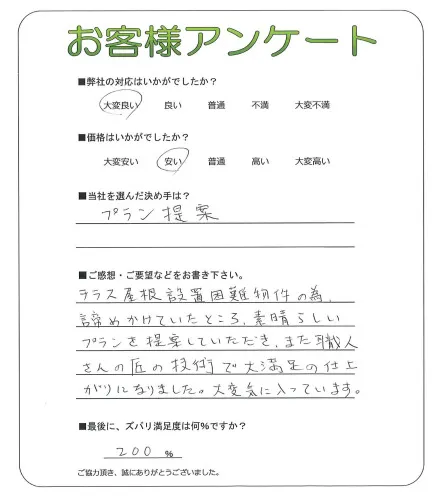 お客様アンケート
■弊社の対応はいかがでしたか？
大変良い 良い 普通 不満 大変不満
■価格はいかがでしたか？
大変安い 安い 普通 高い 大変高い
■当社を選んだ決め手は？
プラン提案
■ご感想・ご要望などをお書き下さい。
テラス屋根設置困難物件の為、
諦めかけていたところ、素晴らしい
プランを提案していただき、また職人
さんの匠の技術で大満足の仕上
がりになりました。大変気に入っています。
■最後に、ズバリ満足度は何%ですか？
200 %
ご協力頂き、誠にありがとうございました。